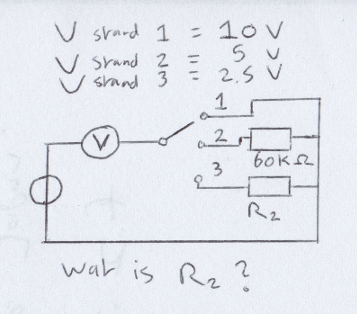 V stand 1 = 10 V
V stand 2 = 5 V
V stand 3 = 2.5 V
1
V
2
60K Ω
3
R2
Wat is R2 ?